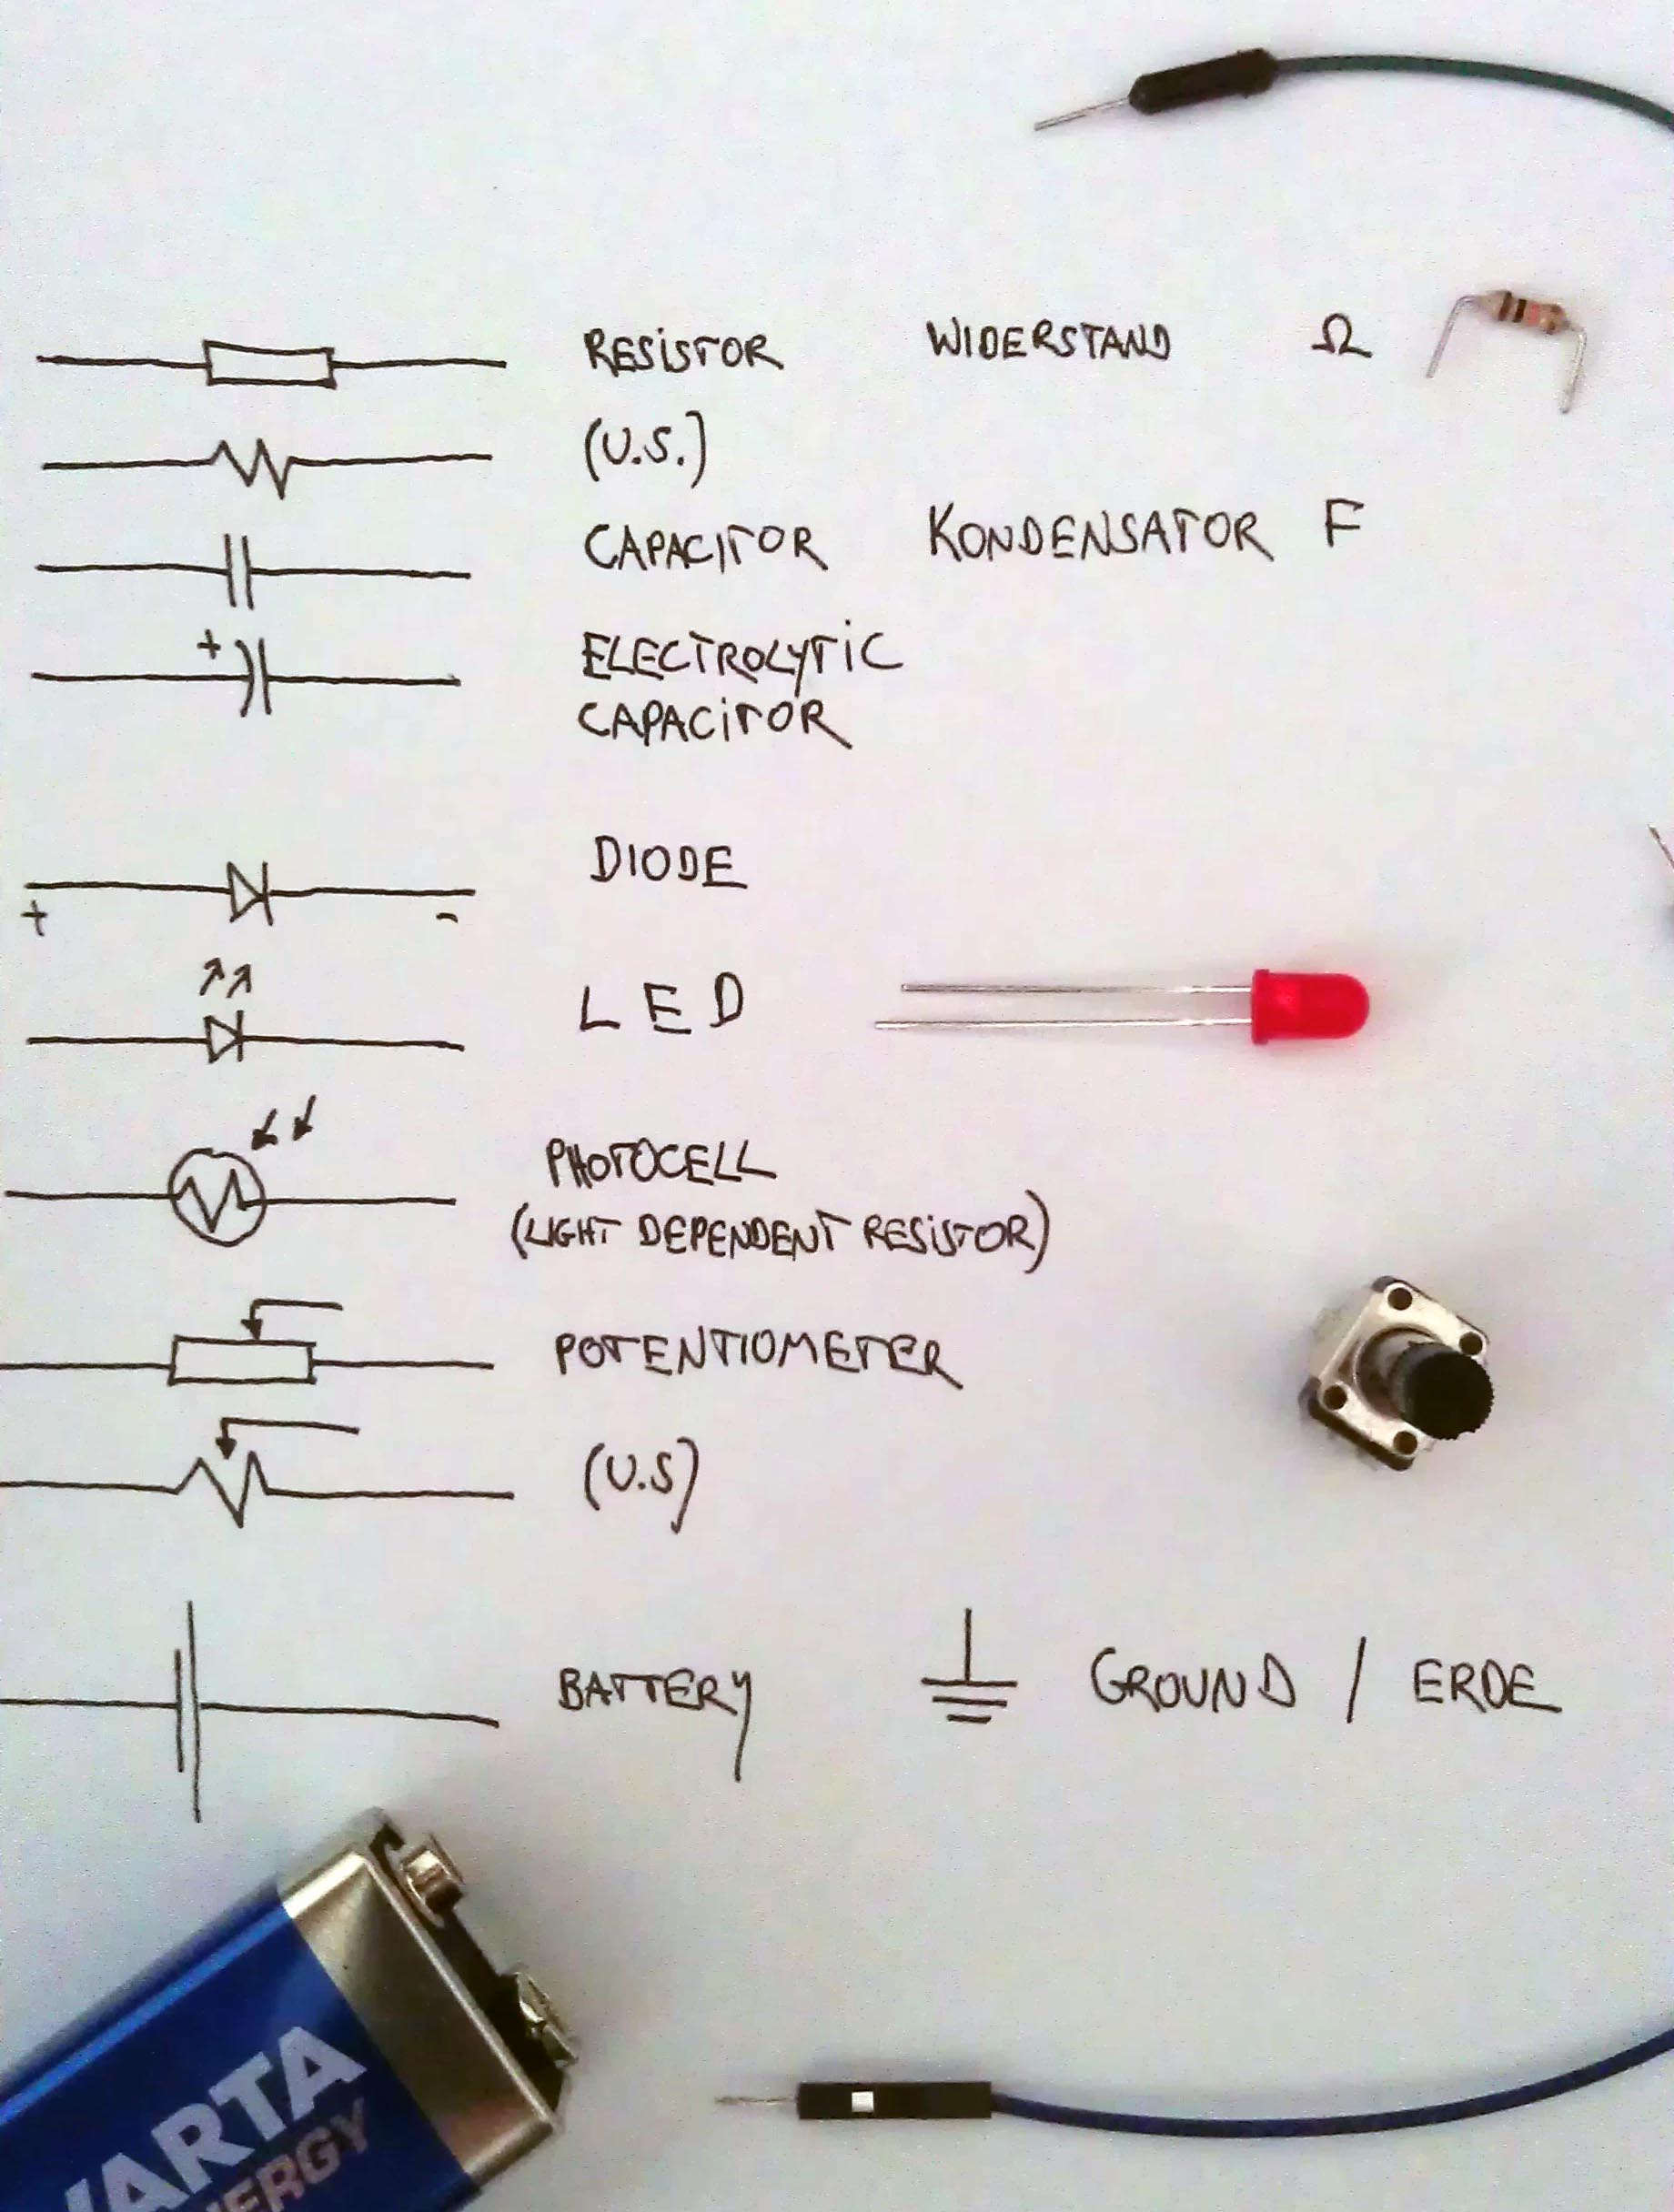 RESISTOR WIDERSTAND Ω
(U.S.)
CAPACITOR KONDENSATOR F
+
ELECTROLYTIC
CAPACITOR
DIODE
+ -
LED
PHOTOCELL
(LIGHT DEPENDENT RESISTOR)
POTENTIOMETER
(U.S)
BATTERY GROUND / ERDE
ARTA
NERGY